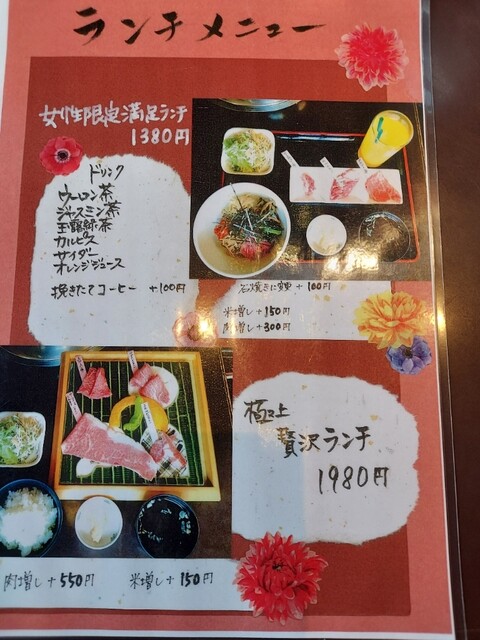 ランチメニュー
女性限定満足ランチ
1380円
ドリンク
ウーロン茶
ジャスミン茶
玉露緑茶
カルピス
サイダー
オレンジジュース
挽きたてコーヒー +100円
石焼きに変更 +100円
米増し +150円
肉増し +300円
極上
贅沢ランチ
1980円
肉増し +550円
米増し +150円